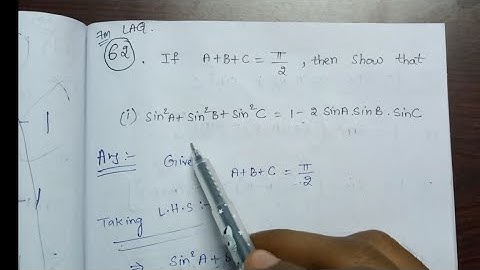 7m LAQ.
62. If A+B+C = π/2, then show that
(i) sin²A + sin²B + sin²C = 1 - 2 sinA. sinB. sinC
Ans:- Give A+B+C = π/2
Taking L.H.S :-
⇒ sin²A + S